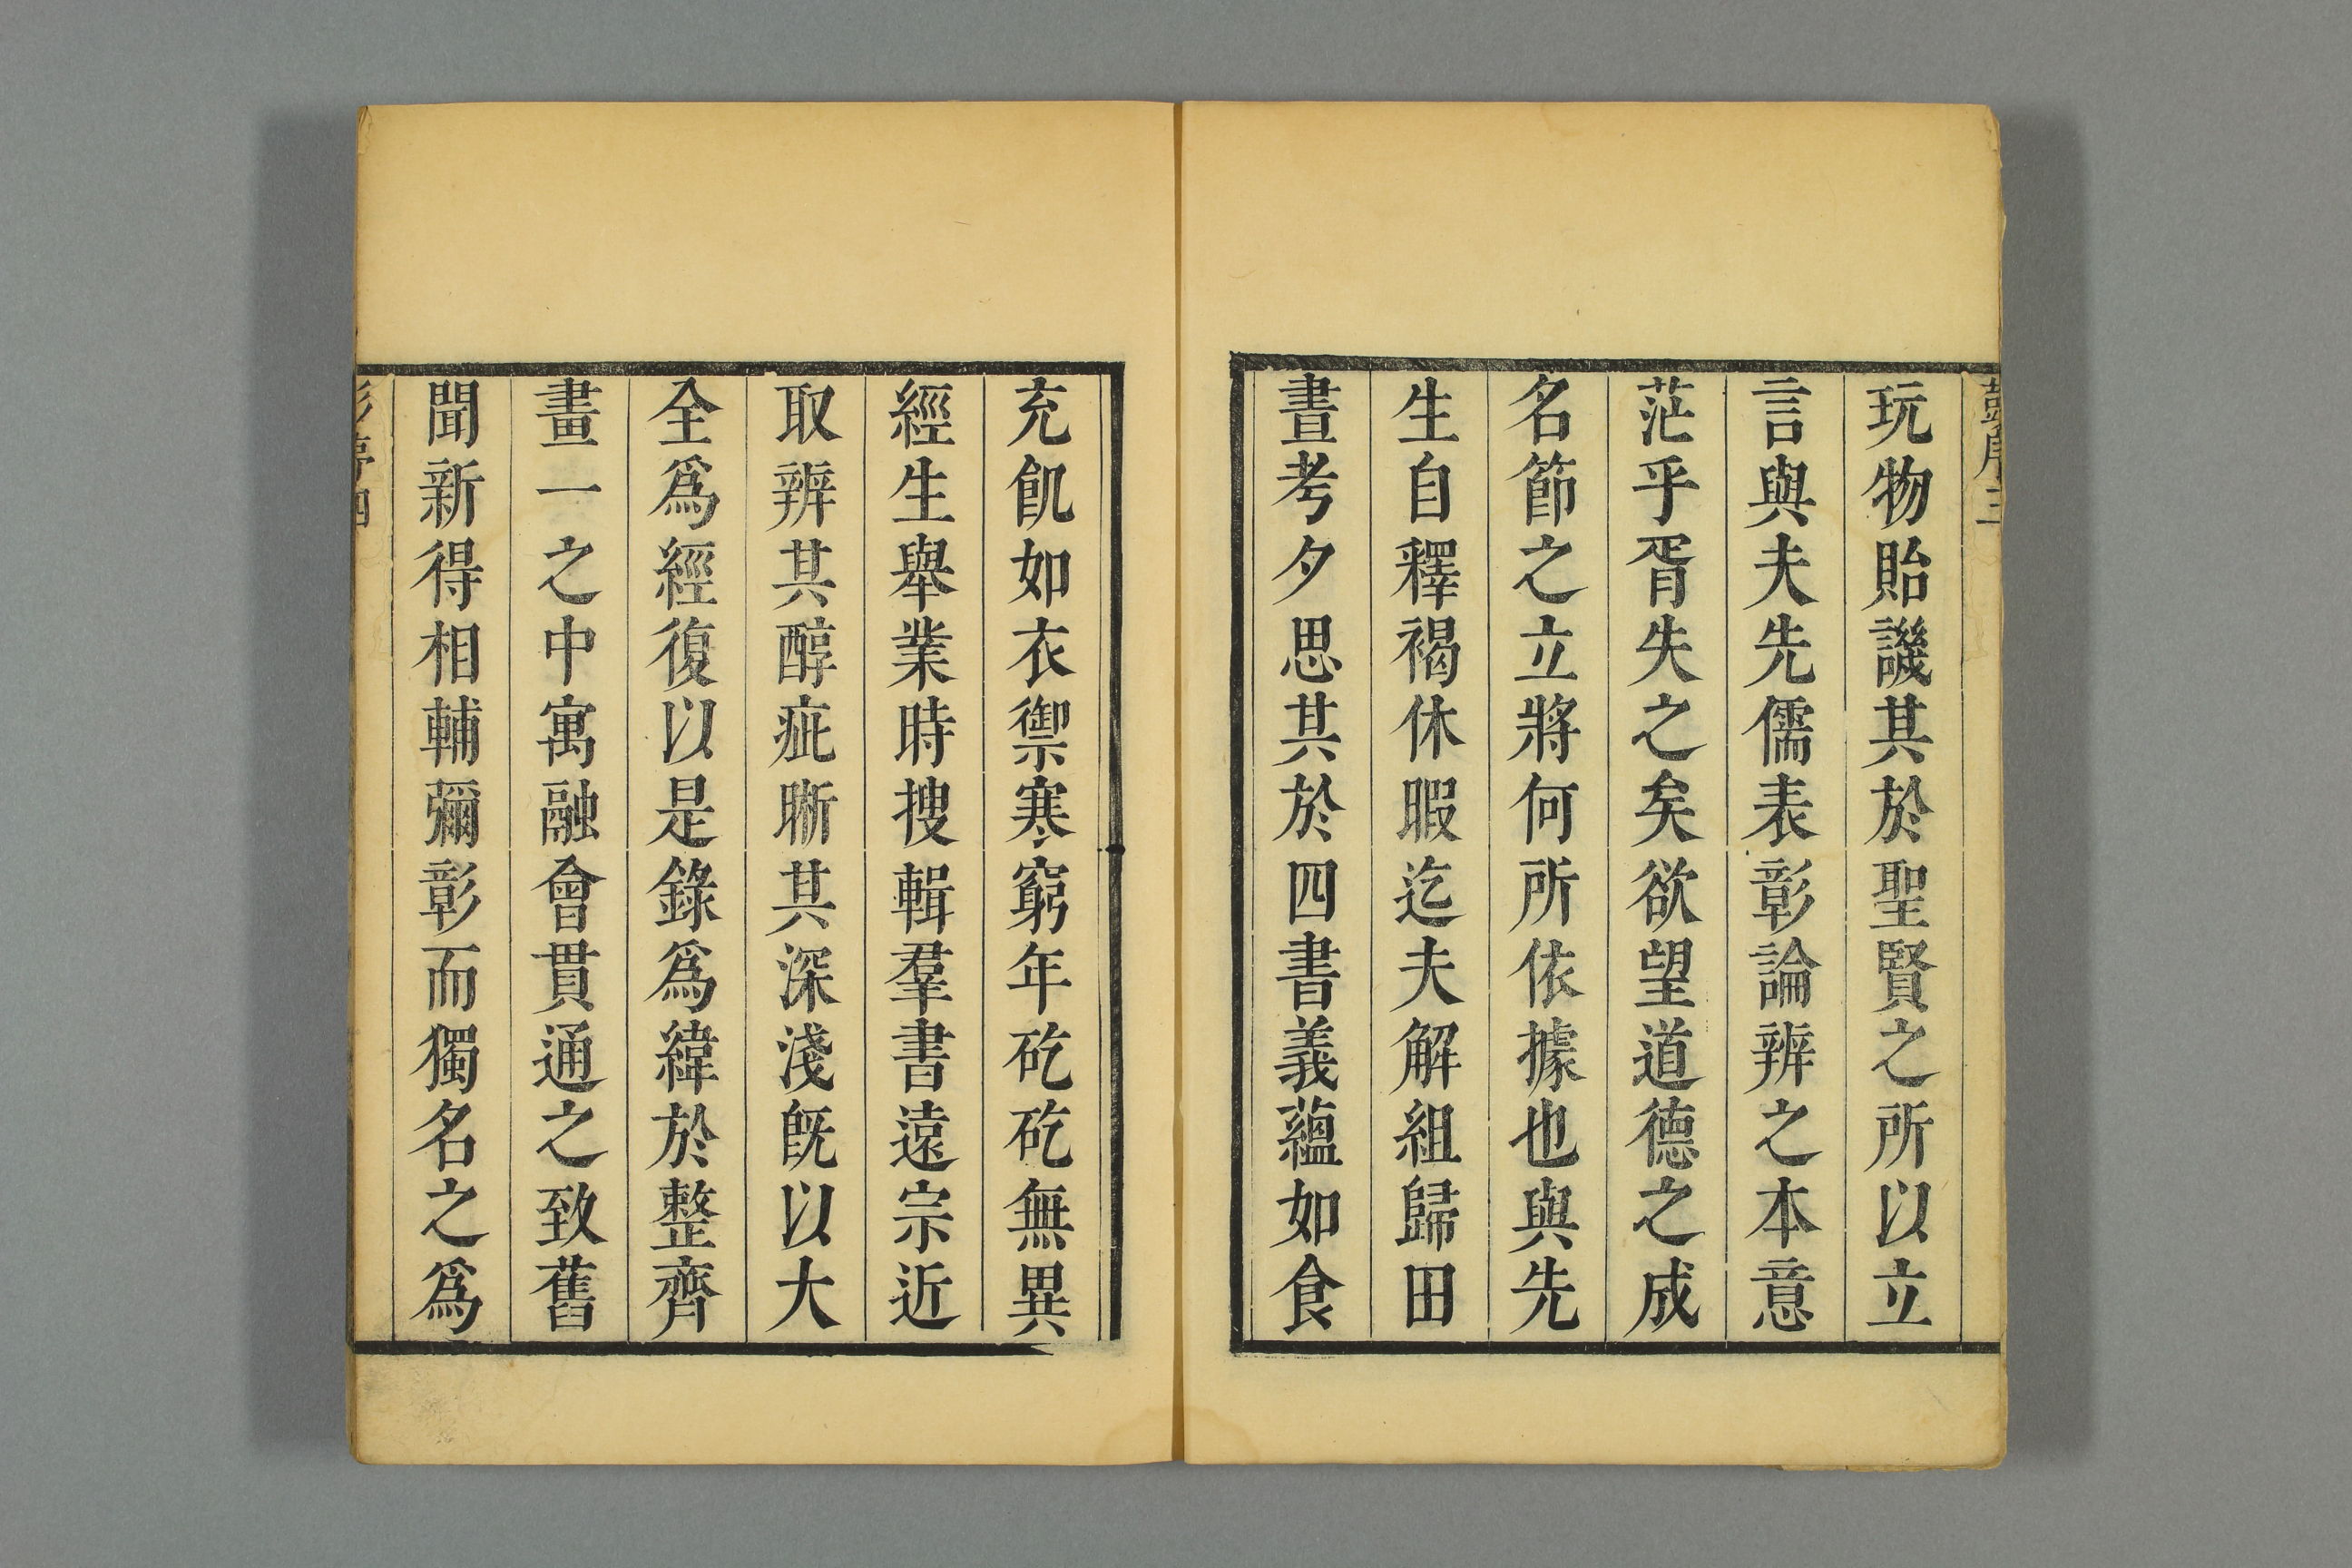 玩物貽譏其於聖賢之所以立
言與夫先儒表彰論辨之本意
茫乎胥失之矣欲望道德之成
名節之立將何所依據也與先
生自釋褐休暇迄夫解組歸田
晝考夕思其於四書義蘊如食
充飢如衣禦寒窮年矻矻無異
經生舉業時搜輯羣書遠宗近
取辨其醇疵晰其深淺既以大
全爲經復以是錄爲緯於整齊
畫一之中寓融會貫通之致舊
聞新得相輔彌彰而獨名之爲